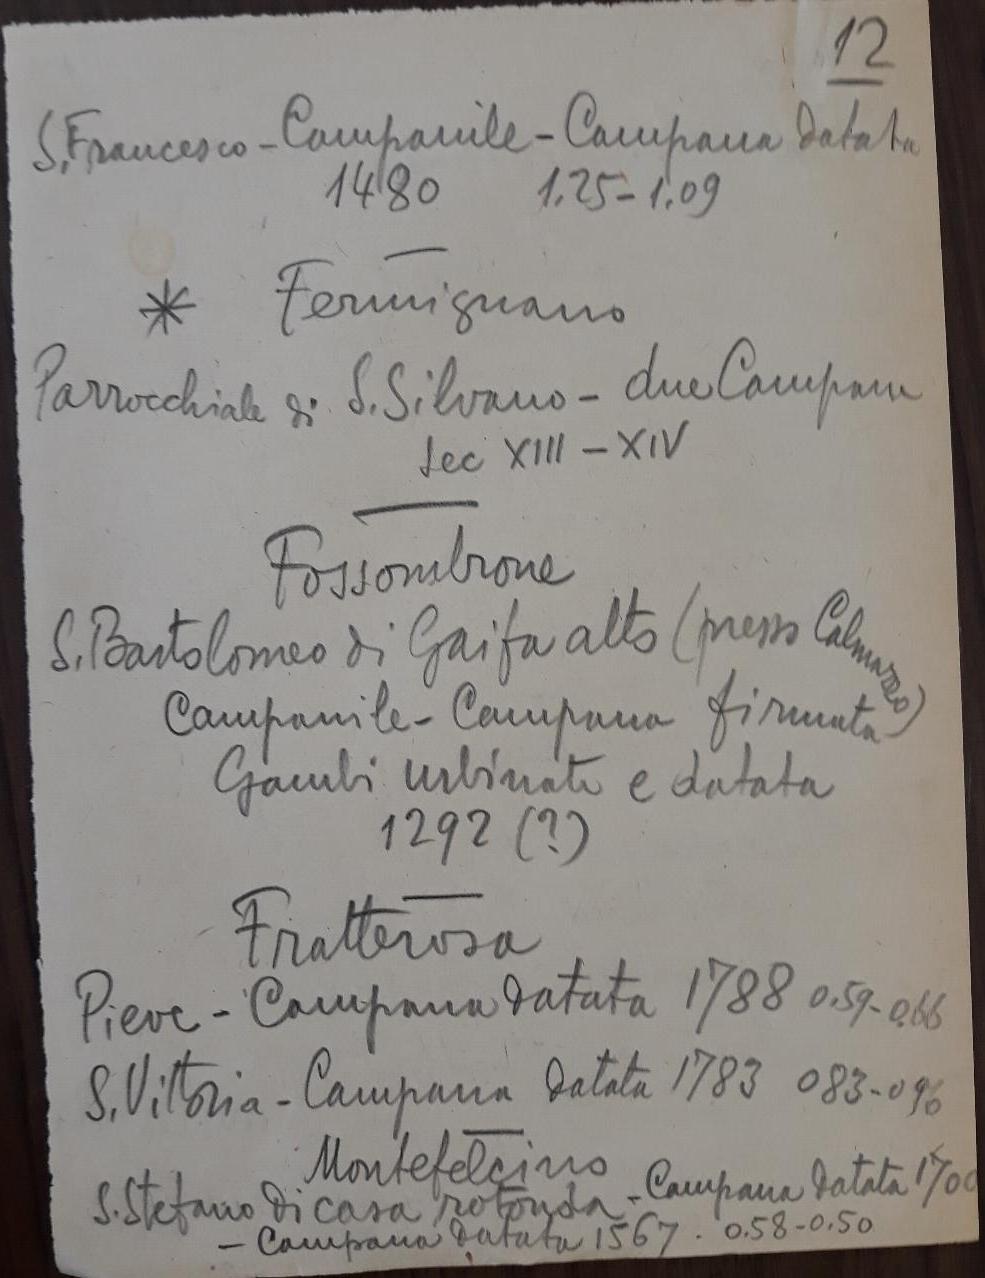 12
S. Francesco - Campanile - Campana datata
1480 1.25 - 1.09
* Fermignano
Parrocchiale di S. Silvano - due Campane
Sec XIII - XIV
Fossombrone
S. Bartolomeo di Gaifa alto (presso Calmazzo)
Campanile - Campana firmata
Gambi urbinate e datata
1292 (?)
Fratterosa
Pieve - Campana datata 1788 0.59 - 0.66
S. Vittoria - Campana datata 1783 083 - 096
Montefelcino
S. Stefano di casa rotonda - Campana datata 1700
- Campana datata 1567. 0.58 - 0.50